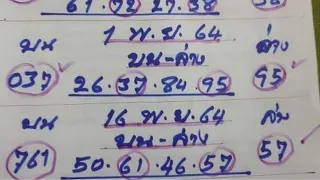 61.72 27.38 38
บน 1 พ.ย.64 ล่าง
บน-ล่าง
037 26.37.84.95 95
บน 16 พ.ย.64 ล่าง
บน-ล่าง
761 50.61.46.57 57